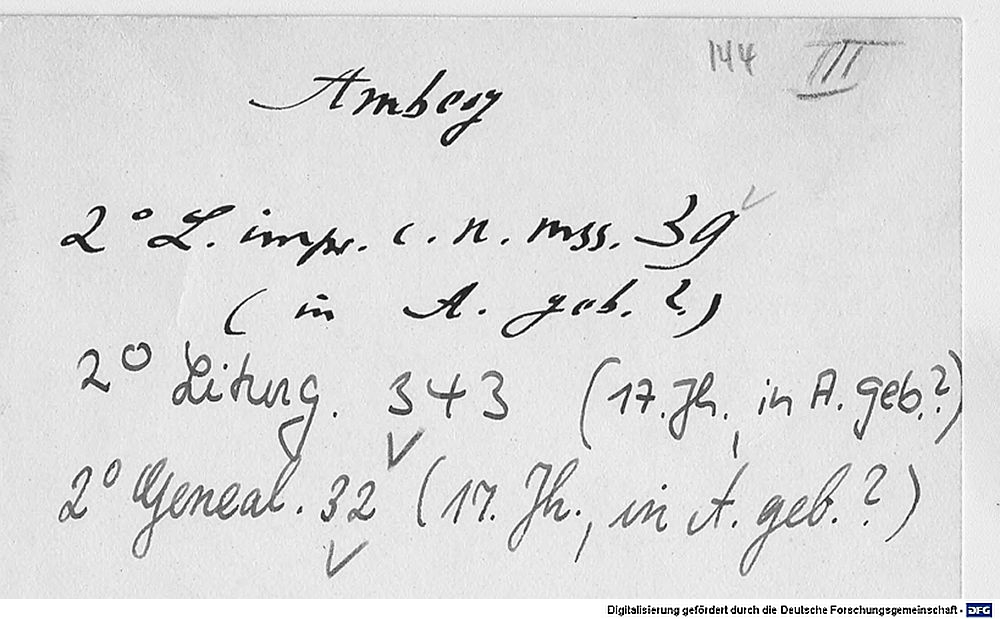 144 III
Amberg
2° L. impr. c. n. mss. 39 ✓
(in A. geb.?)
2° Liturg. 343 (17. Jh., in A. geb.?)
✓
2° Geneal. 32 (17. Jh., in A. geb.?)
✓
Digitalisierung gefördert durch die Deutsche Forschungsgemeinschaft - DFG